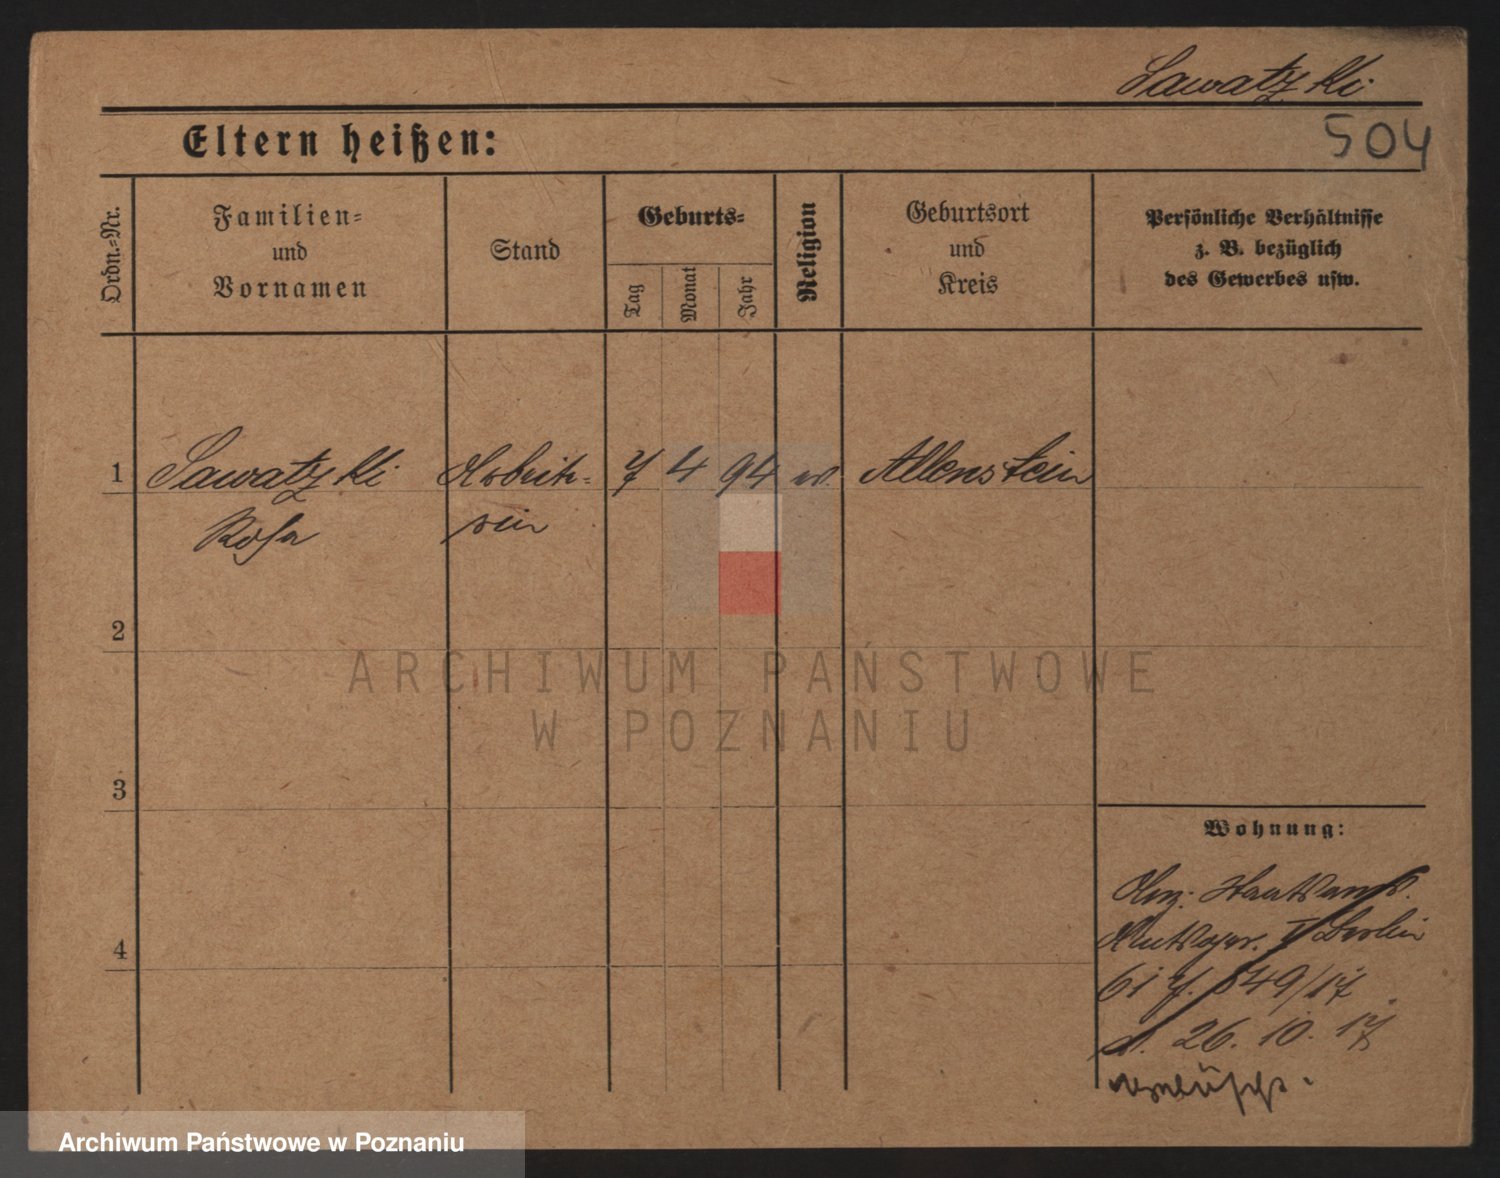 Sawatzki
504
Eltern heißen:
Ordn.-Nr.
Familien-
und
Vornamen
Stand
Geburts-
Tag
Monat
Jahr
Religion
Geburtsort
und
Kreis
Persönliche Verhältnisse
z. B. bezüglich
des Gewerbes usw.
1 Sawatzki Arbeite- 7 4 94 Allenstein
Rosa rin
2
ARCHIWUM PAŃSTWOWE
W POZNANIU
3
Wohnung:
Anz. Staatsanw.
4
I Berlin
61 J. 849/17
d. 26. 10. 17
Archiwum Państwowe w Poznaniu